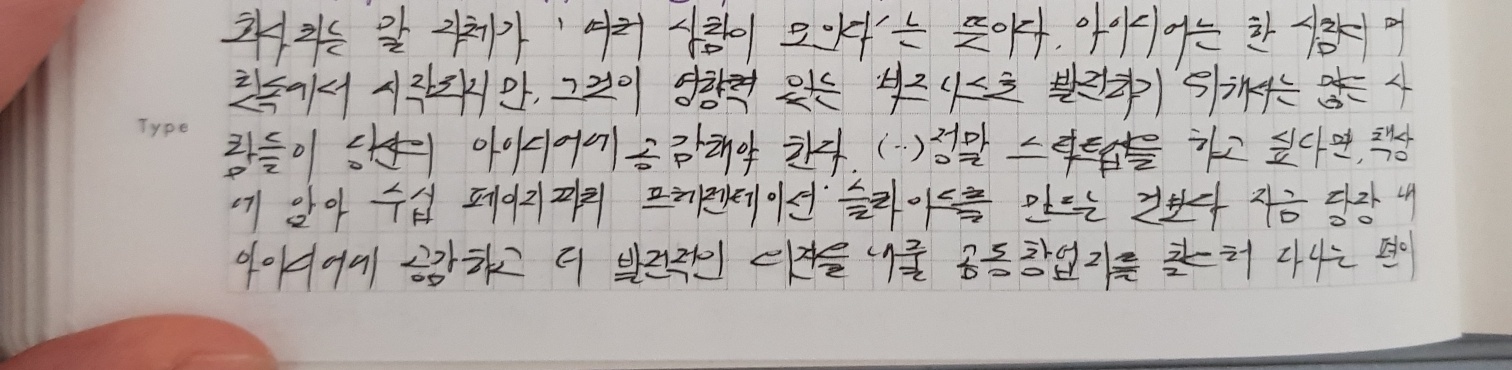 회사라는 말 자체가 '여러 사람이 모이다'는 뜻이다. 아이디어는 한 사람의 머
릿속에서 시작되지만, 그것이 영향력 있는 비즈니스로 발전하기 위해서는 많은 사
Type
람들이 당신의 아이디어에 공감해야 한다. (..) 정말 스타트업을 하고 싶다면, 책상
에 앉아 수십 페이지짜리 프레젠테이션 슬라이드를 만드는 것보다 지금 당장 내
아이디어에 공감하고 더 발전적인 의견을 내줄 공동창업자를 찾으러 다니는 편이